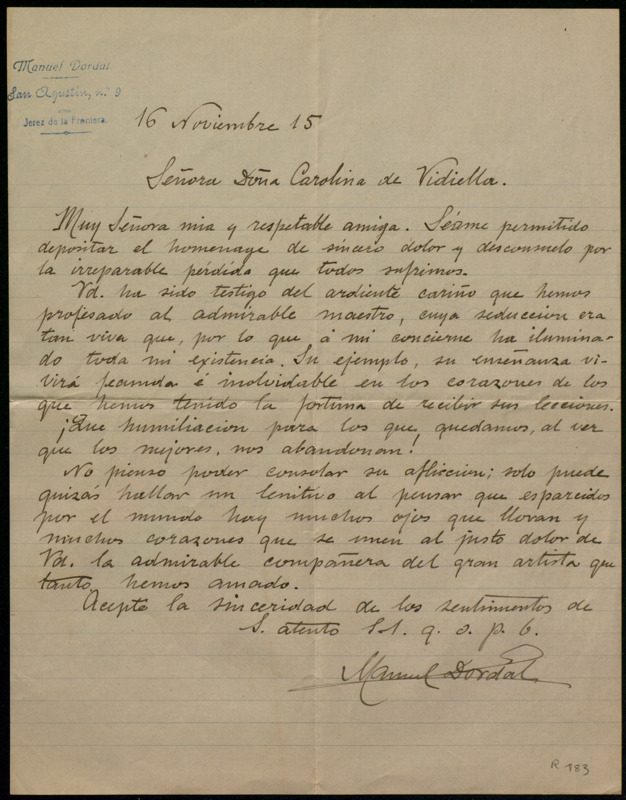 Manuel Dordal
San Agustín, n.º 9
Jerez de la Frontera.
16 Noviembre 15
Señora Doña Carolina de Vidiella.
Muy Señora mia y respetable amiga. Séame permitido
depositar el homenage de sincero dolor y desconsuelo por
la irreparable pérdida que todos sufrimos.
Vd. ha sido testigo del ardiente cariño que hemos
profesado al admirable maestro, cuya seduccion era
tan viva que, por lo que á mi concierne ha ilumina-
do toda mi existencia. Su ejemplo, su enseñanza vi-
virá fecunda é inolvidable en los corazones de los
que hemos tenido la fortuna de recibir sus lecciones.
¡Que humiliacion para los que, quedamos, al ver
que los mejores, nos abandonan!
No pienso poder consolar su afliccion; solo puede
quizás hallar un lenitivo al pensar que esparcidos
por el mundo hay muchos ojos que lloran y
muchos corazones que se unen al justo dolor de
Vd. la admirable compañera del gran artista que
tanto hemos amado.
Acepte la sinceridad de los sentimentos de
S. atento S.S. q. s. p. b.
Manuel Dordal
R 183